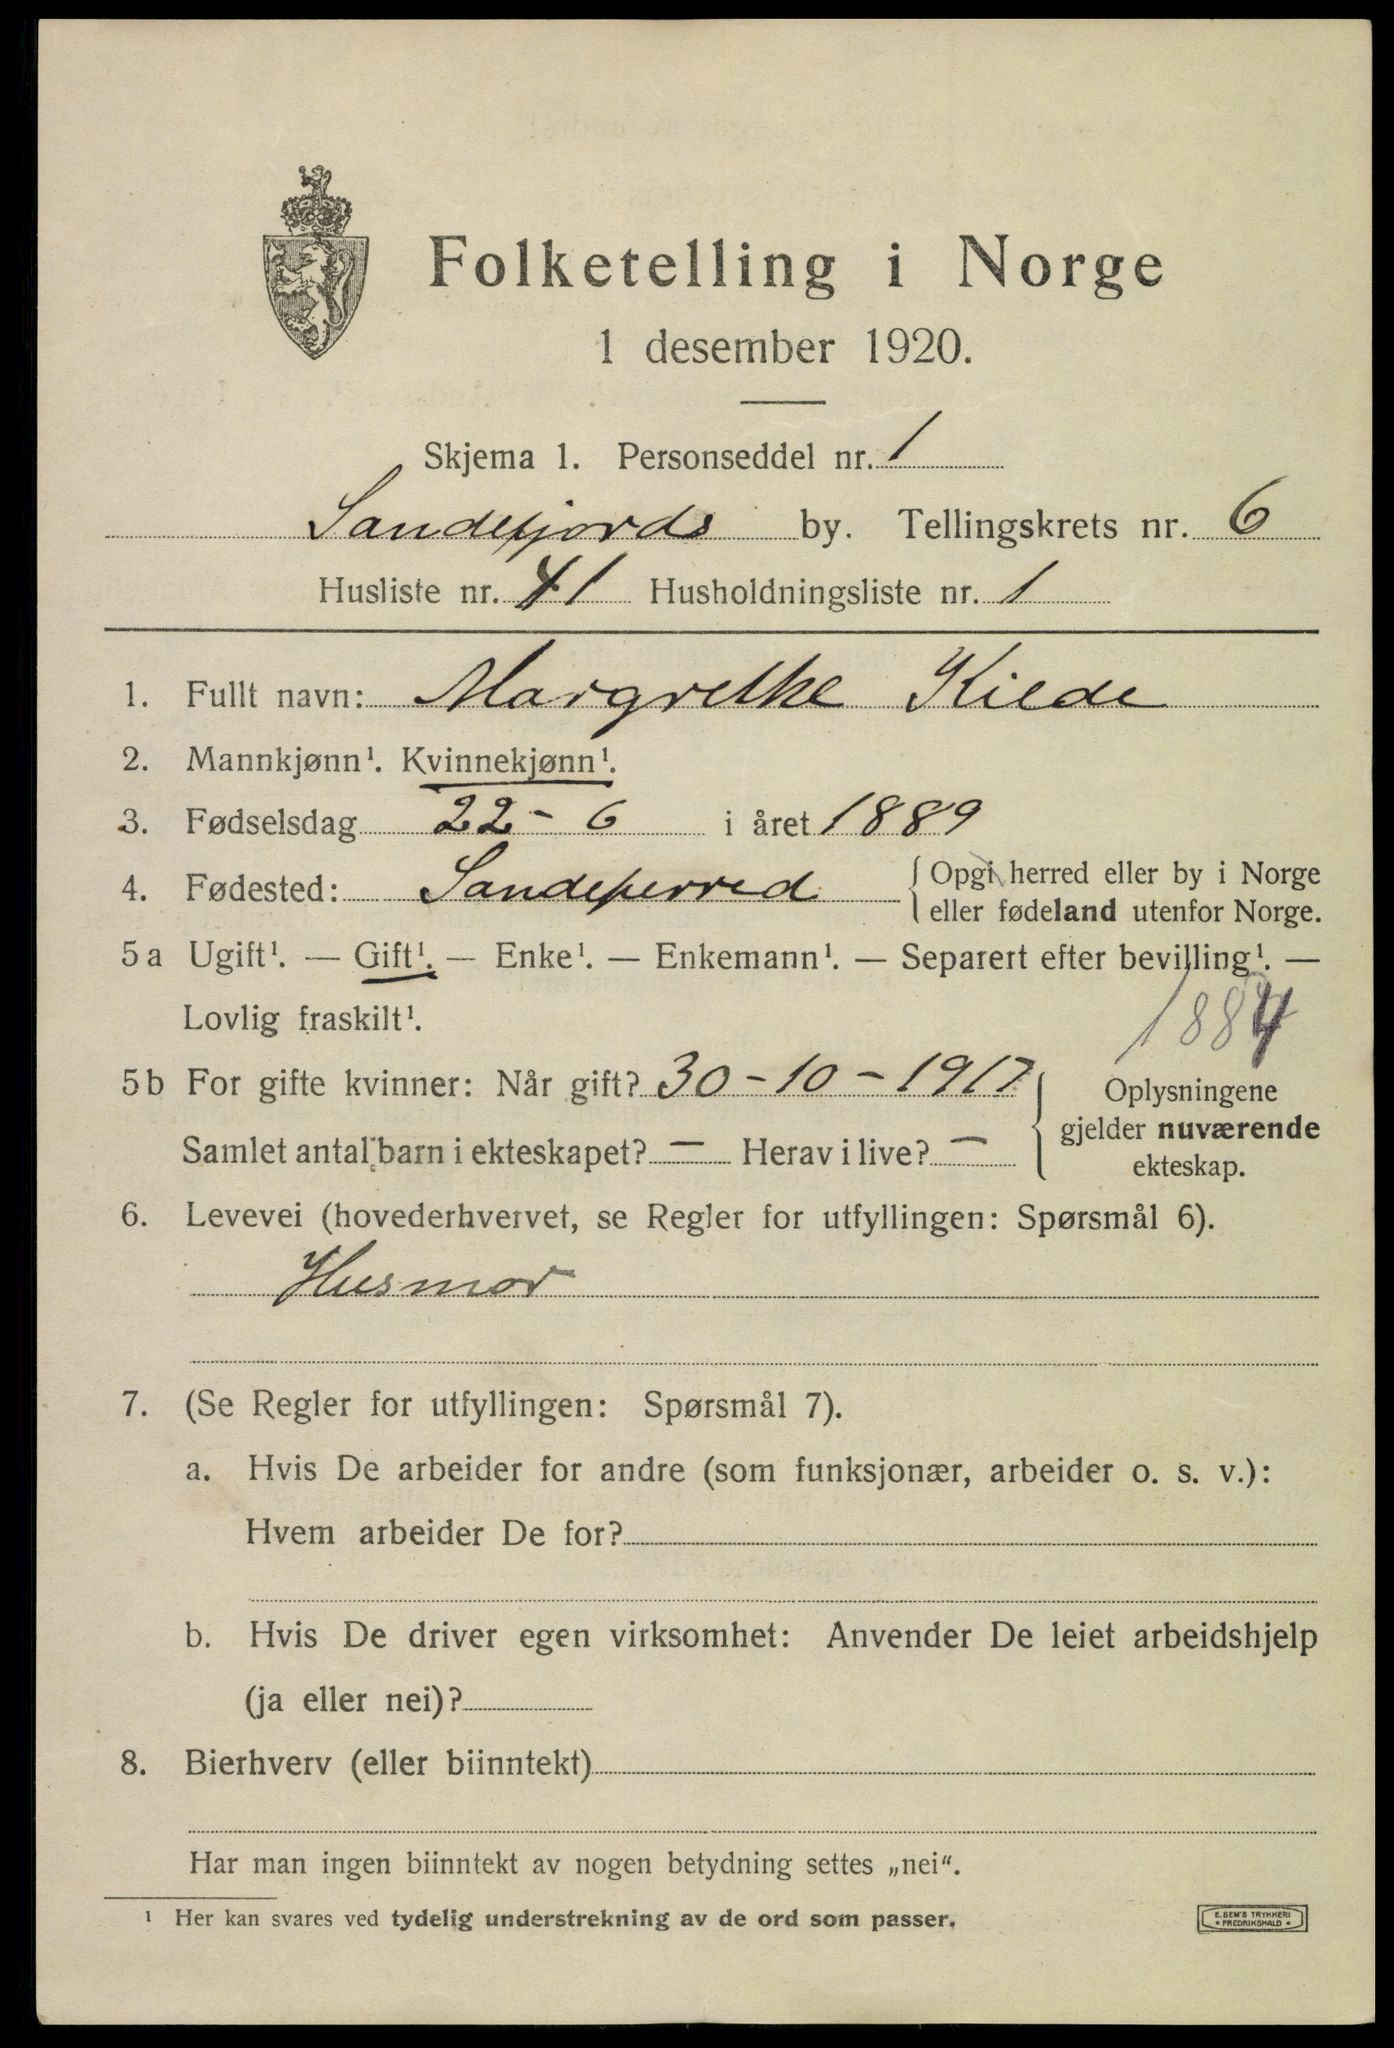 Folketelling i Norge
1 desember 1920.
Skjema 1. Personseddel nr. 1
Sandefjords by. Tellingskrets nr. 6
Husliste nr. 41 Husholdningsliste nr. 1
1. Fullt navn: Margrethe Kilde
2. Mannkjønn¹. Kvinnekjønn¹.
3. Fødselsdag 22 - 6 i året 1889
4. Fødested: Sandeherred { Opgi herred eller by i Norge
eller fødeland utenfor Norge.
5 a Ugift¹. — Gift¹. — Enke¹. — Enkemann¹. — Separert efter bevilling¹. —
Lovlig fraskilt¹.
1884
5 b For gifte kvinner: Når gift? 30 - 10 - 1917 { Oplysningene
gjelder nuværende
ekteskap.
Samlet antal barn i ekteskapet? — Herav i live? —
6. Levevei (hovederhvervet, se Regler for utfyllingen: Spørsmål 6).
Husmor
7. (Se Regler for utfyllingen: Spørsmål 7).
a. Hvis De arbeider for andre (som funksjonær, arbeider o. s. v.):
Hvem arbeider De for?
b. Hvis De driver egen virksomhet: Anvender De leiet arbeidshjelp
(ja eller nei)?
8. Bierhverv (eller biinntekt)
Har man ingen biinntekt av nogen betydning settes „nei“.
¹ Her kan svares ved tydelig understrekning av de ord som passer.
E. SEM'S TRYKKERI
• FREDRIKSHALD •